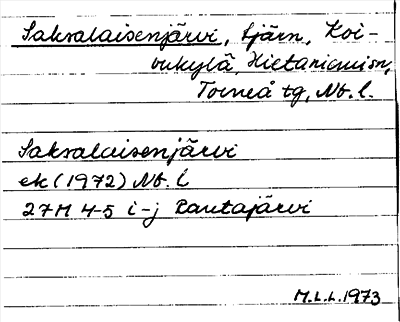 Saksalaisenjärvi, tjärn, Koi-
vukylä, Hietaniemi sn,
Torneå tg, Nb. l.
Saksalaisenjärvi
ek (1972) Nb. l
27M 4-5 i-j Rautajärvi
M.L.L. 1973